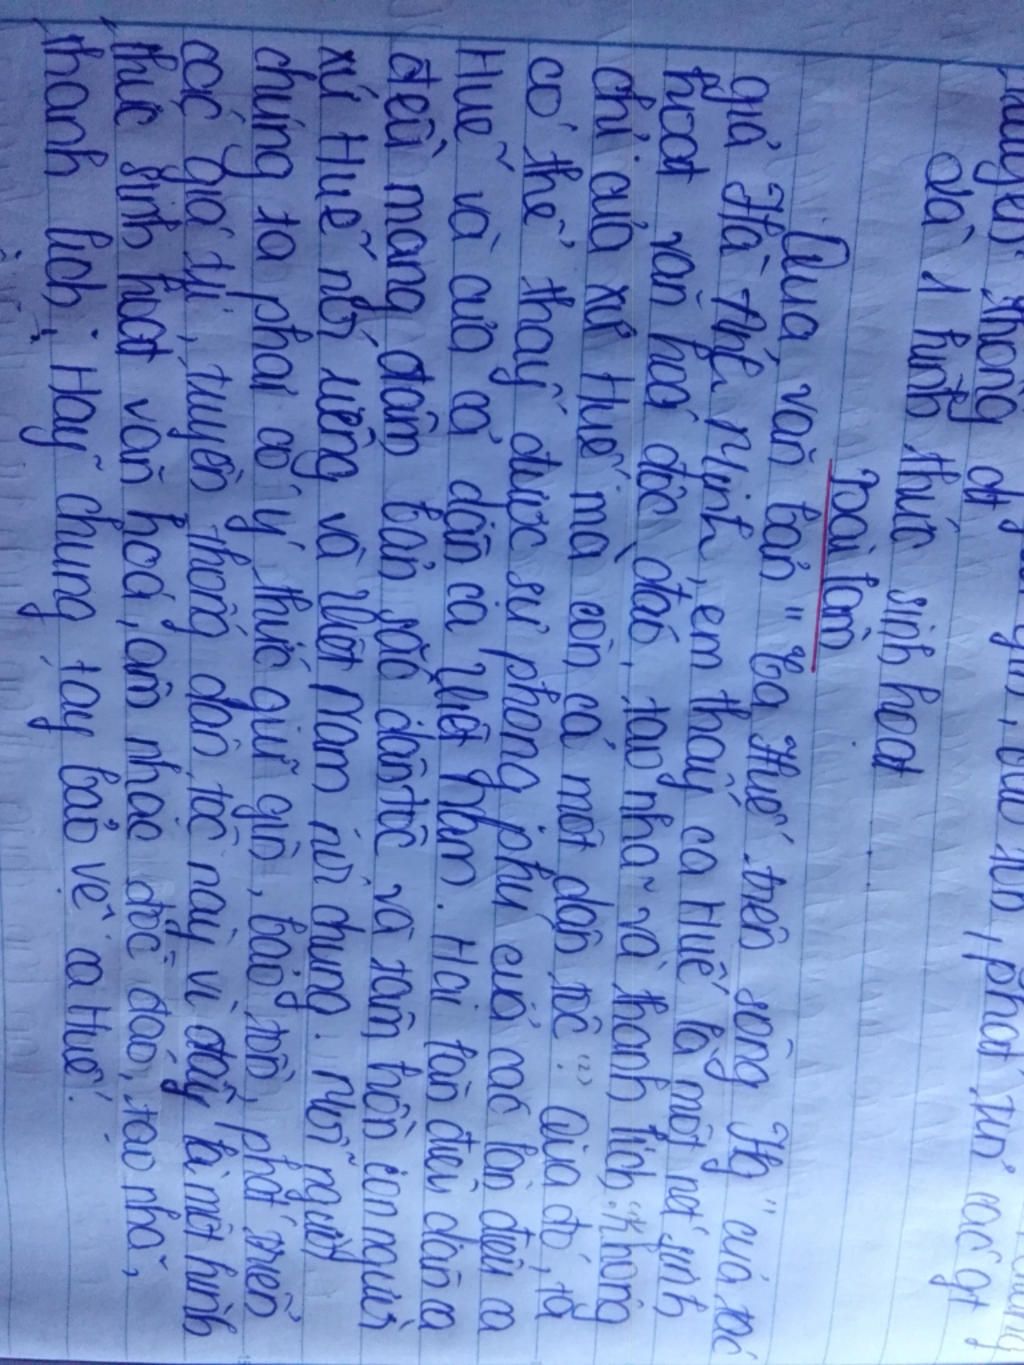 truyền thống
Là 1 hình thức sinh hoạt
Bài làm
Qua văn bản "Ca Huế trên sông Hg" của tác
giả Hà Ánh Minh, em thấy ca Huế là một nét sinh
hoạt văn hoá độc đáo, tao nhã và thanh lịch.⁽¹⁾ Không
chỉ của xứ Huế mà còn cả một dân tộc.⁽²⁾ Qua đó, ta
có thể thấy được sự phong phú của các làn điệu ca
Huế và của cả dân ca Việt Nam. Hai làn điệu dân ca
đều mang đậm bản sắc dân tộc và tâm hồn con người
xứ Huế nói riêng và Việt Nam nói chung. Mỗi người
chúng ta phải có ý thức giữ gìn, bảo tồn, phát triển
các giá trị, truyền thống dân tộc này vì đây là một hình
thức sinh hoạt văn hoá, âm nhạc độc đáo, tao nhã,
thanh lịch. Hãy chung tay bảo vệ ca Huế.